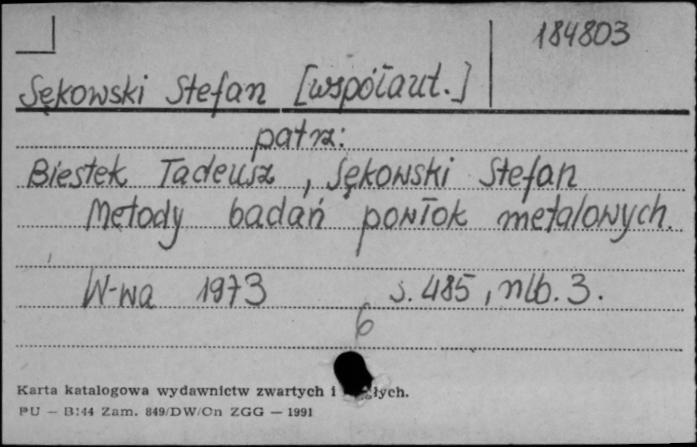 184803
Sękowski Stefan [współaut.]
patrz:
Biestek Tadeusz, Sękowski Stefan
Metody badań powłok metalowych.
W-wa 1973 s. 485, nlb. 3.
6
Karta katalogowa wydawnictw zwartych i
PU — B144 Zam. 849/DW/Cn ZGG — 1991